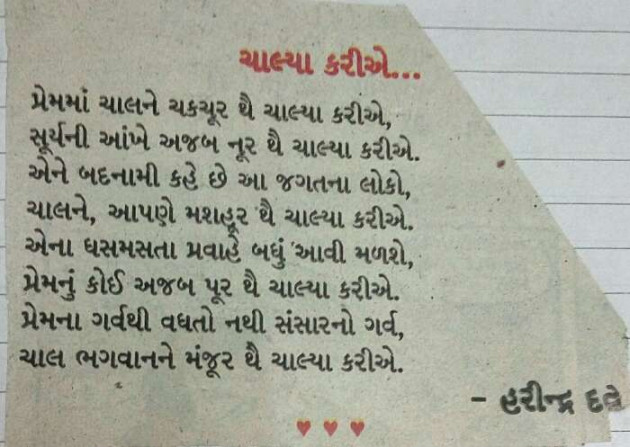 ચાલ્યા કરીએ...
પ્રેમમાં ચાલને ચકચૂર થૈ ચાલ્યા કરીએ,
સૂર્યની આંખે અજબ નૂર થૈ ચાલ્યા કરીએ.
એને બદનામી કહે છે આ જગતના લોકો,
ચાલને, આપણે મશહૂર થૈ ચાલ્યા કરીએ.
એના ધસમસતા પ્રવાહે બધું આવી મળશે,
પ્રેમનું કોઈ અજબ પૂર થૈ ચાલ્યા કરીએ.
પ્રેમના ગર્વથી વધતો નથી સંસારનો ગર્વ,
ચાલ ભગવાનને મંજૂર થૈ ચાલ્યા કરીએ.
- હરીન્દ્ર દવે